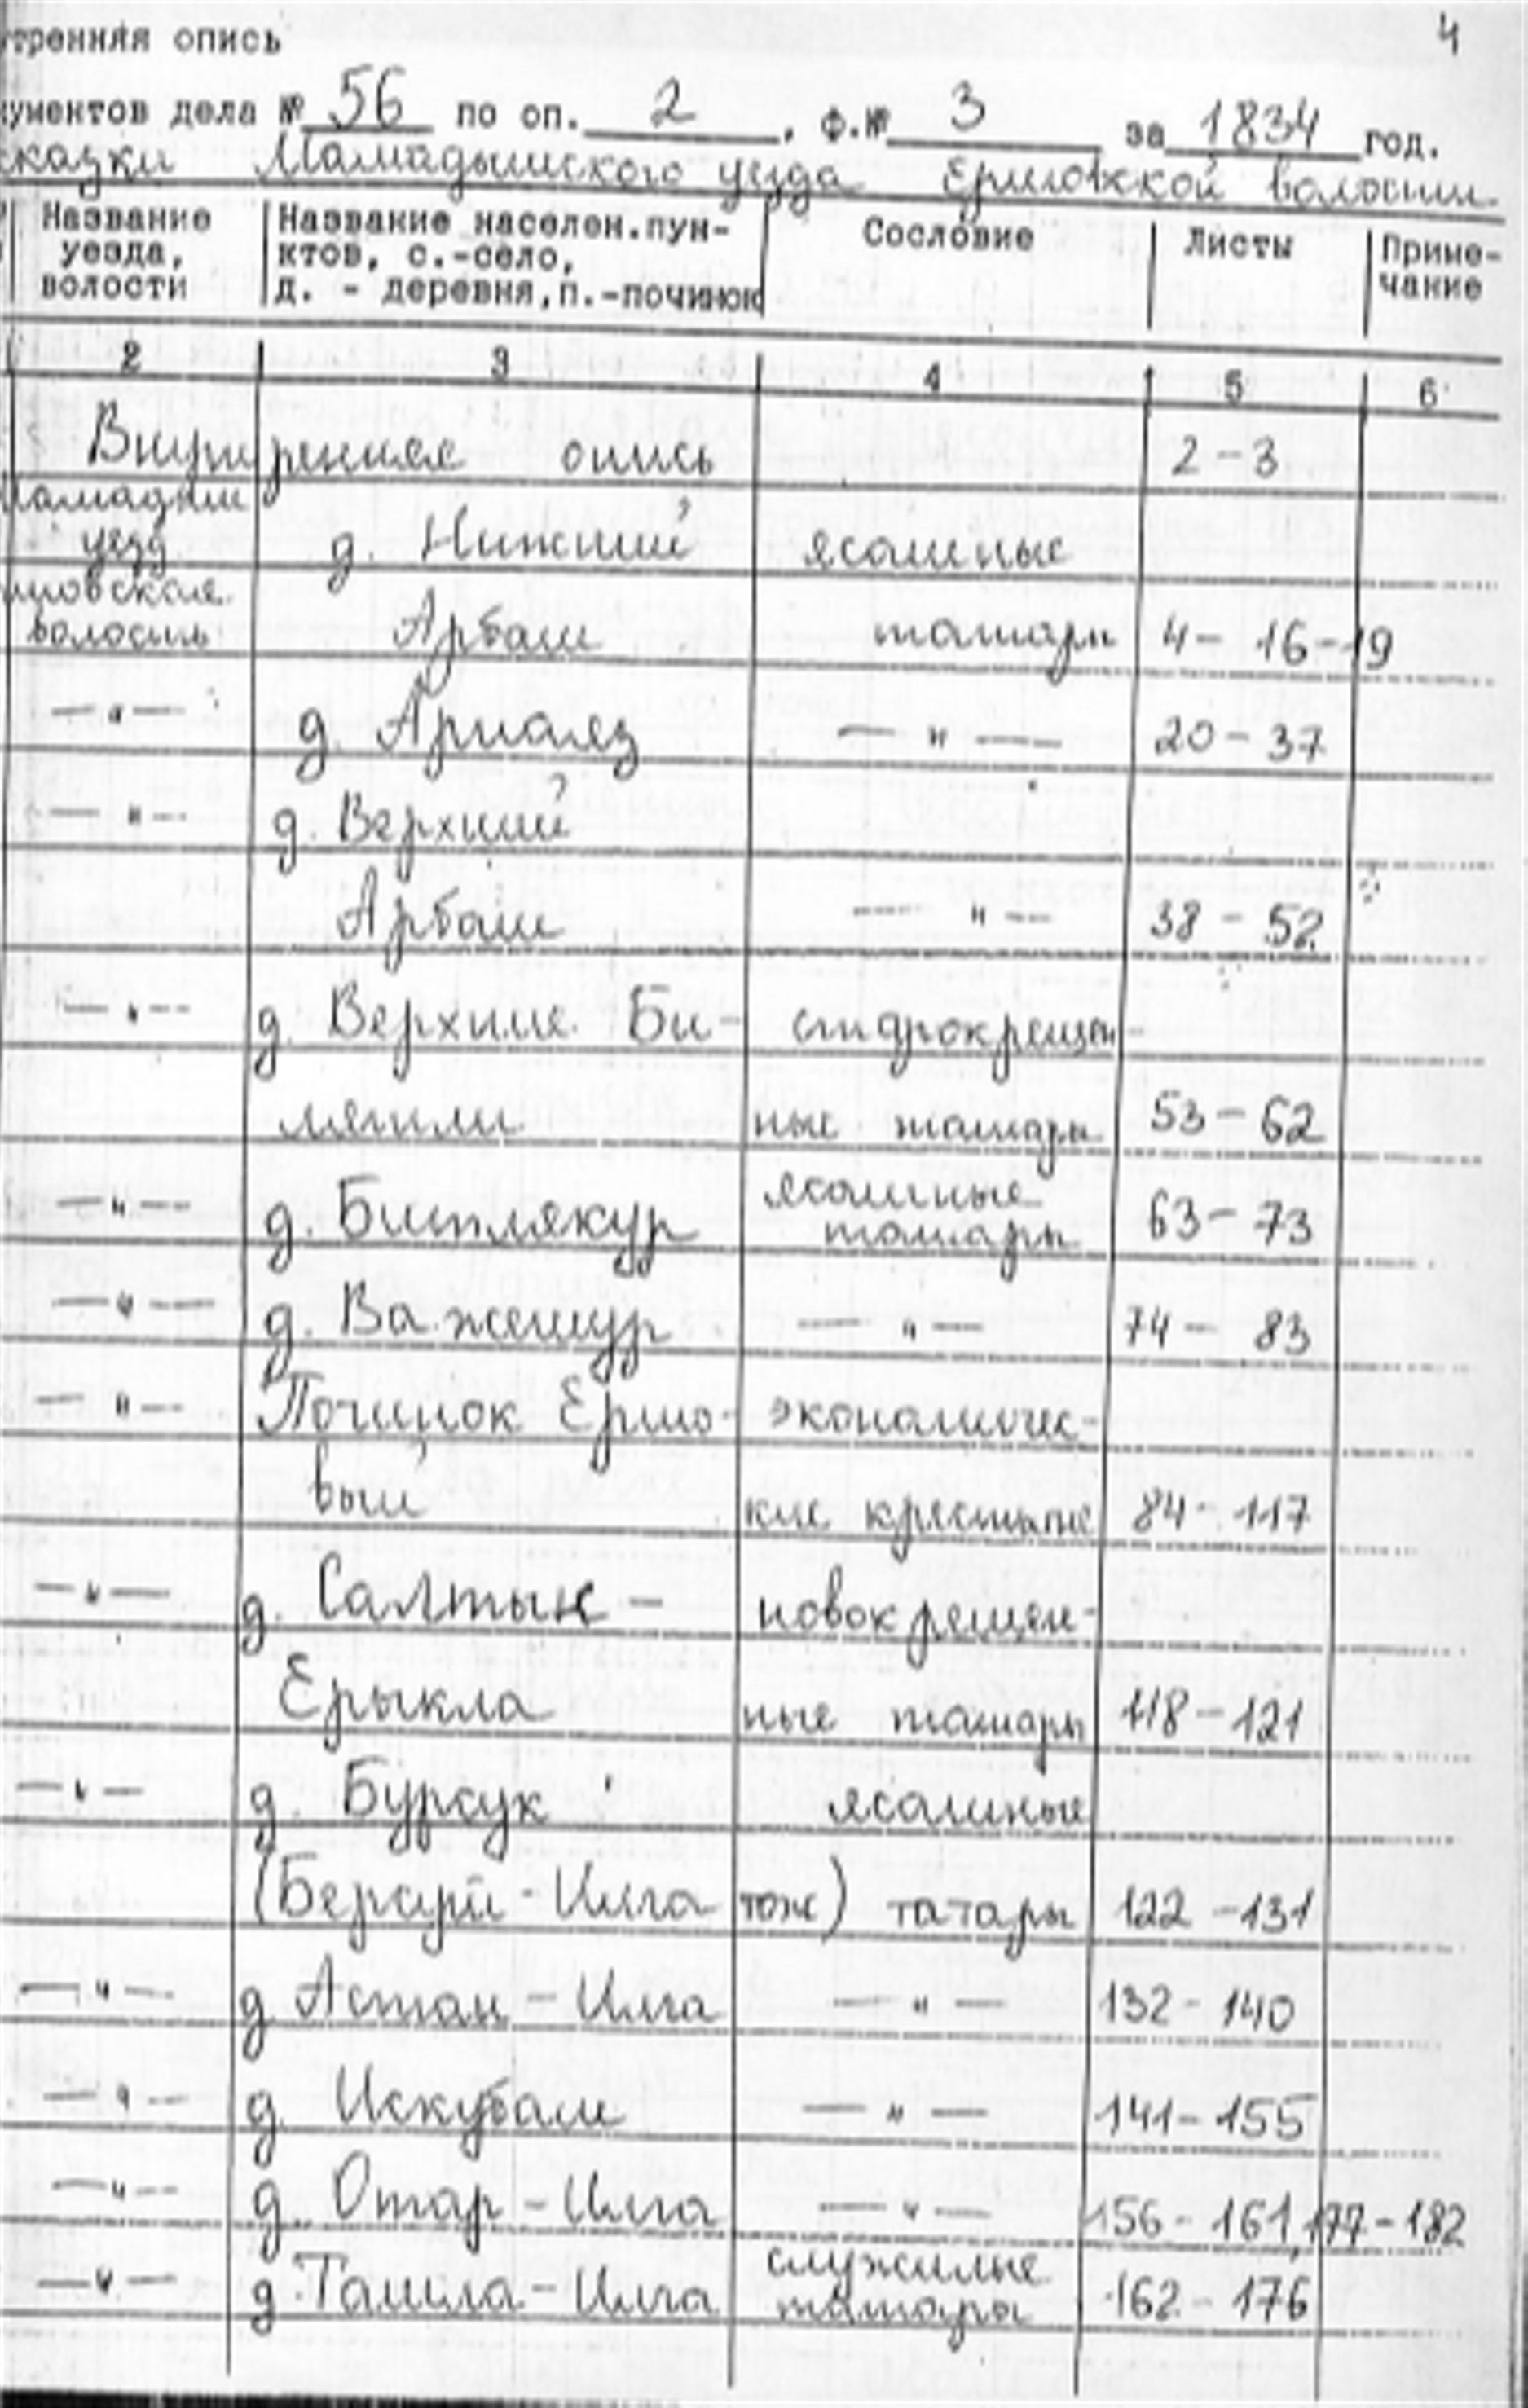 4
утренняя опись
кументов дела № 56 по оп. 2, ф.№ 3 за 1834 год.
сказки Мамадышского уезда Ершовской волости
Название уезда, волости | Название населен.пунктов, с.-село, д. - деревня, п.-починок | Сословие | Листы | Приме-чание
2 3 4 5 6
Внутренняя опись 2-3
Мамадыш
уезд д. Нижний ясашные
шовская
волость Арбаш татары 4- 16-19
—"— д. Арнаяз —"— 20-37
—"— д. Верхний
Арбаш —"— 38-52
—"— д. Верхние Би- старокрещен-
мятли ные татары 53-62
—"— д. Битлякур ясашные татары 63-73
—"— д. Важешур —"— 74- 83
—"— Починок Ершо- экономичес-
вый кие крестьяне 84-117
—"— д. Салтык - новокрещен-
Ерыкла ные татары 118-121
—"— д. Бурсук ясашные
(Берсут - Илга тож) татары 122-131
—"— д. Астан - Илга —"— 132-140
—"— д. Искубаш —"— 141-155
—"— д. Отар - Илга —"— 156-161, 177-182
—"— д. Ташла - Илга служилые татары 162-176